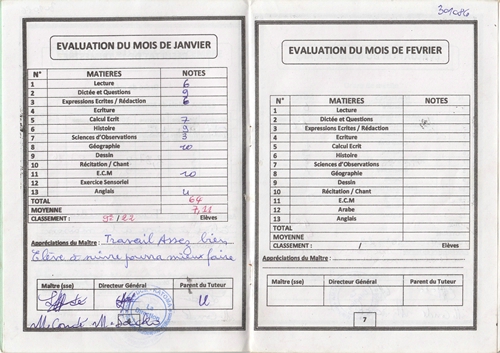 301086
EVALUATION DU MOIS DE JANVIER
N° MATIERES NOTES
1 Lecture 6
2 Dictée et Questions 9
3 Expressions Ecrites / Rédaction 6
4 Ecriture
5 Calcul Ecrit 7
6 Histoire 9
7 Sciences d'Observations 3
8 Géographie 10
9 Dessin
10 Récitation / Chant
11 E.C.M 10
12 Exercice Sensoriel
13 Anglais 4
TOTAL 64
MOYENNE 7,11
CLASSEMENT : 9e / 22 Elèves
Appréciations du Maître : Travail Assez bien
Elève à suivre pourra mieux faire
Maître (sse) Directeur Général Parent du Tuteur
M. Condé M.
EVALUATION DU MOIS DE FEVRIER
N° MATIERES NOTES
1 Lecture
2 Dictée et Questions
3 Expressions Ecrites / Rédaction
4 Ecriture
5 Calcul Ecrit
6 Histoire
7 Sciences d'Observations
8 Géographie
9 Dessin
10 Récitation / Chant
11 E.C.M
12 Arabe
13 Anglais
TOTAL
MOYENNE
CLASSEMENT : / Elèves
Appréciations du Maître :
Maître (sse) Directeur Général Parent du Tuteur
7